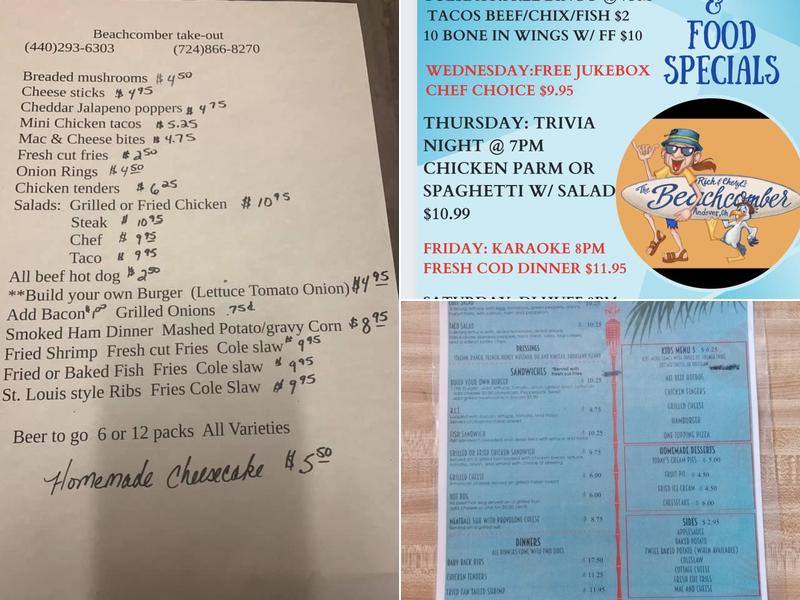 Beachcomber take-out
(440)293-6303 (724)866-8270
Breaded mushrooms $4.50
Cheese sticks $4.95
Cheddar Jalapeno poppers $4.75
Mini Chicken tacos $5.25
Mac & Cheese bites $4.75
Fresh cut fries $2.50
Onion Rings $4.50
Chicken tenders $6.25
Salads: Grilled or Fried Chicken $10.95
Steak $10.95
Chef $9.95
Taco $9.95
All beef hot dog $2.50
**Build your own Burger (Lettuce Tomato Onion) $4.95
Add Bacon Grilled Onions .75¢
Smoked Ham Dinner Mashed Potato/gravy Corn $8.95
Fried Shrimp Fresh cut Fries Cole slaw $9.95
Fried or Baked Fish Fries Cole slaw $9.95
St. Louis style Ribs Fries Cole Slaw $9.95
Beer to go 6 or 12 packs All Varieties
Homemade Cheesecake $5.50
TACOS BEEF/CHIX/FISH $2
10 BONE IN WINGS W/ FF $10
WEDNESDAY:FREE JUKEBOX
CHEF CHOICE $9.95
THURSDAY: TRIVIA
NIGHT @ 7PM
CHICKEN PARM OR
SPAGHETTI W/ SALAD
$10.99
FRIDAY: KARAOKE 8PM
FRESH COD DINNER $11.95
&
FOOD
SPECIALS
Rich & Cheryl's
The Beachcomber
Andover, Oh
TACO SALAD 10.25
DRESSINGS
SANDWICHES *Served with fresh cut fries
BUILD YOUR OWN BURGER 10.25
B.L.T. 8.75
FISH SANDWICH 10.25
GRILLED OR FRIED CHICKEN SANDWICH 9.75
GRILLED CHEESE 6.00
HOT DOG 6.00
MEATBALL SUB WITH PROVOLONE CHEESE 8.75
DINNERS
ALL DINNERS COME WITH TWO SIDES
BABY BACK RIBS 17.50
CHICKEN TENDERS 11.25
FRIED FAN TAILED SHRIMP 11.95
KIDS MENU $ 6.25
ALL BEEF HOTDOG
CHICKEN FINGERS
GRILLED CHEESE
HAMBURGER
ONE TOPPING PIZZA
HOMEMADE DESSERTS
TODAY'S CREAM PIES - $ 5.00
FRUIT PIE - $ 4.50
FRIED ICE CREAM - $ 4.50
CHEESECAKE - $ 6.00
SIDES $ 2.95
APPLESAUCE
BAKED POTATO
TWICE BAKED POTATO (WHEN AVAILABLE)
COLESLAW
COTTAGE CHEESE
FRESH CUT FRIES
MAC AND CHEESE